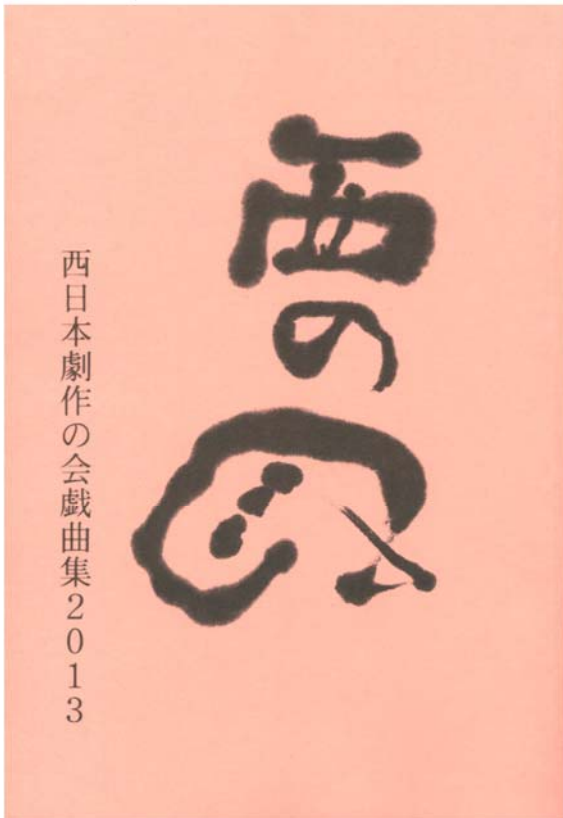 西の風
西日本劇作の会戯曲集2013